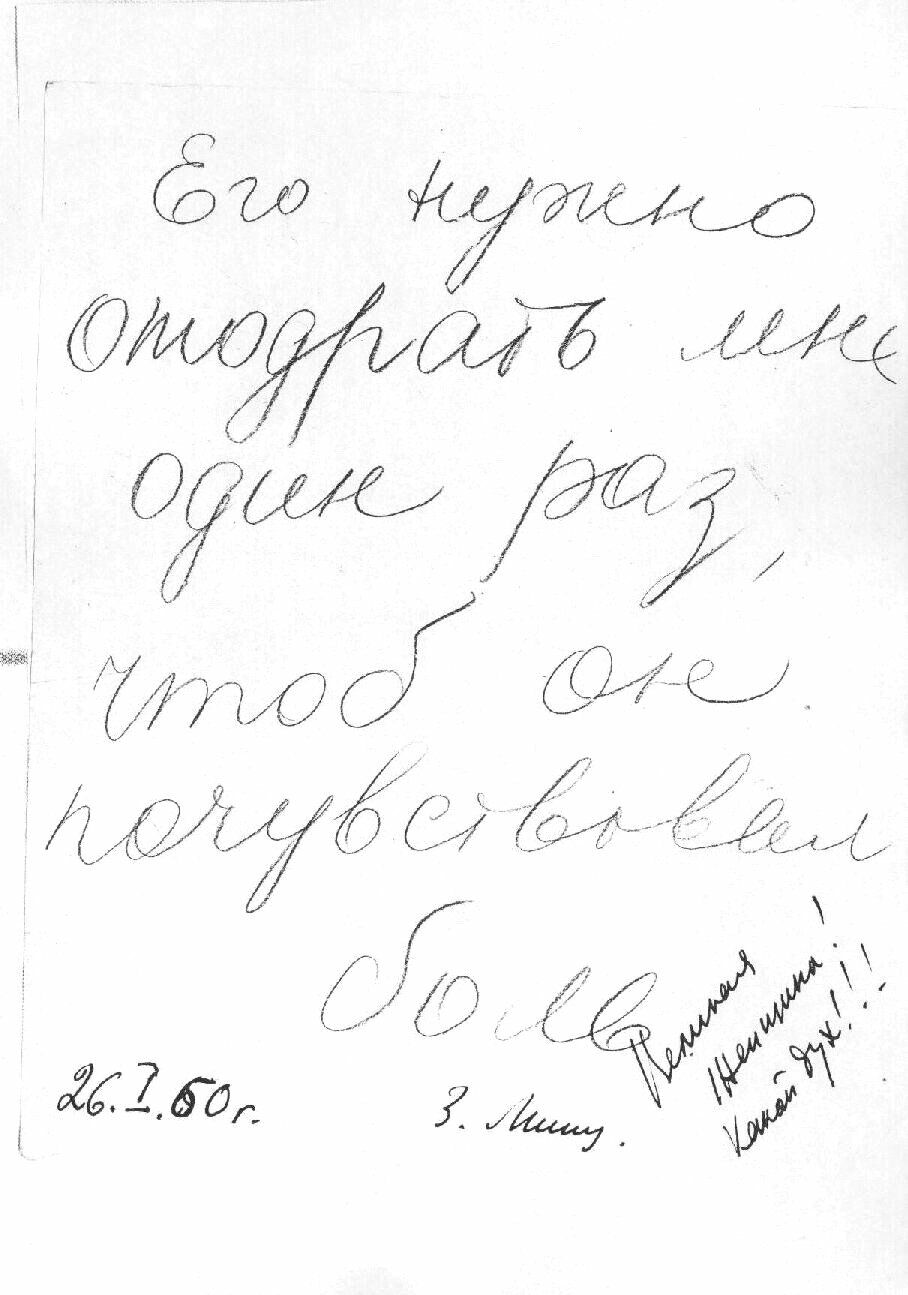 Его нужно
отодрать мне
один раз,
чтоб он
почувствовал
боль
Великая
Женщина!
Какой дух!!!
26.I.60 г.
З. Минц.